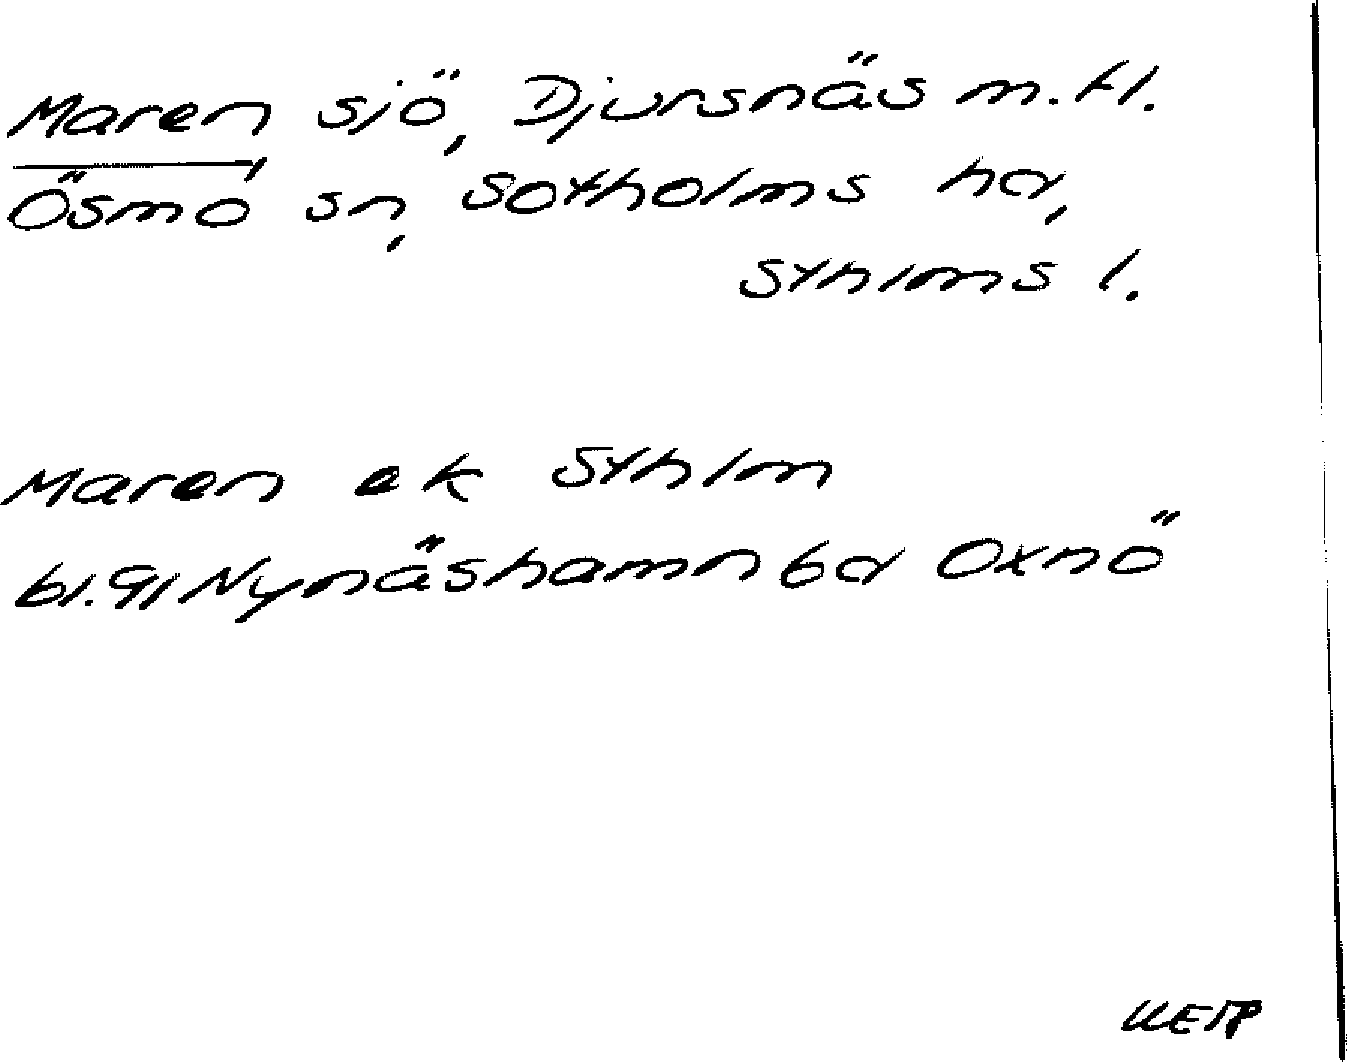 Maren sjö, Djursnäs m.fl.
Ösmo sn, Sotholms hd,
Sthlms l.
Maren ek Sthlm
bl.91 Nynäshamn 6d Oxnö